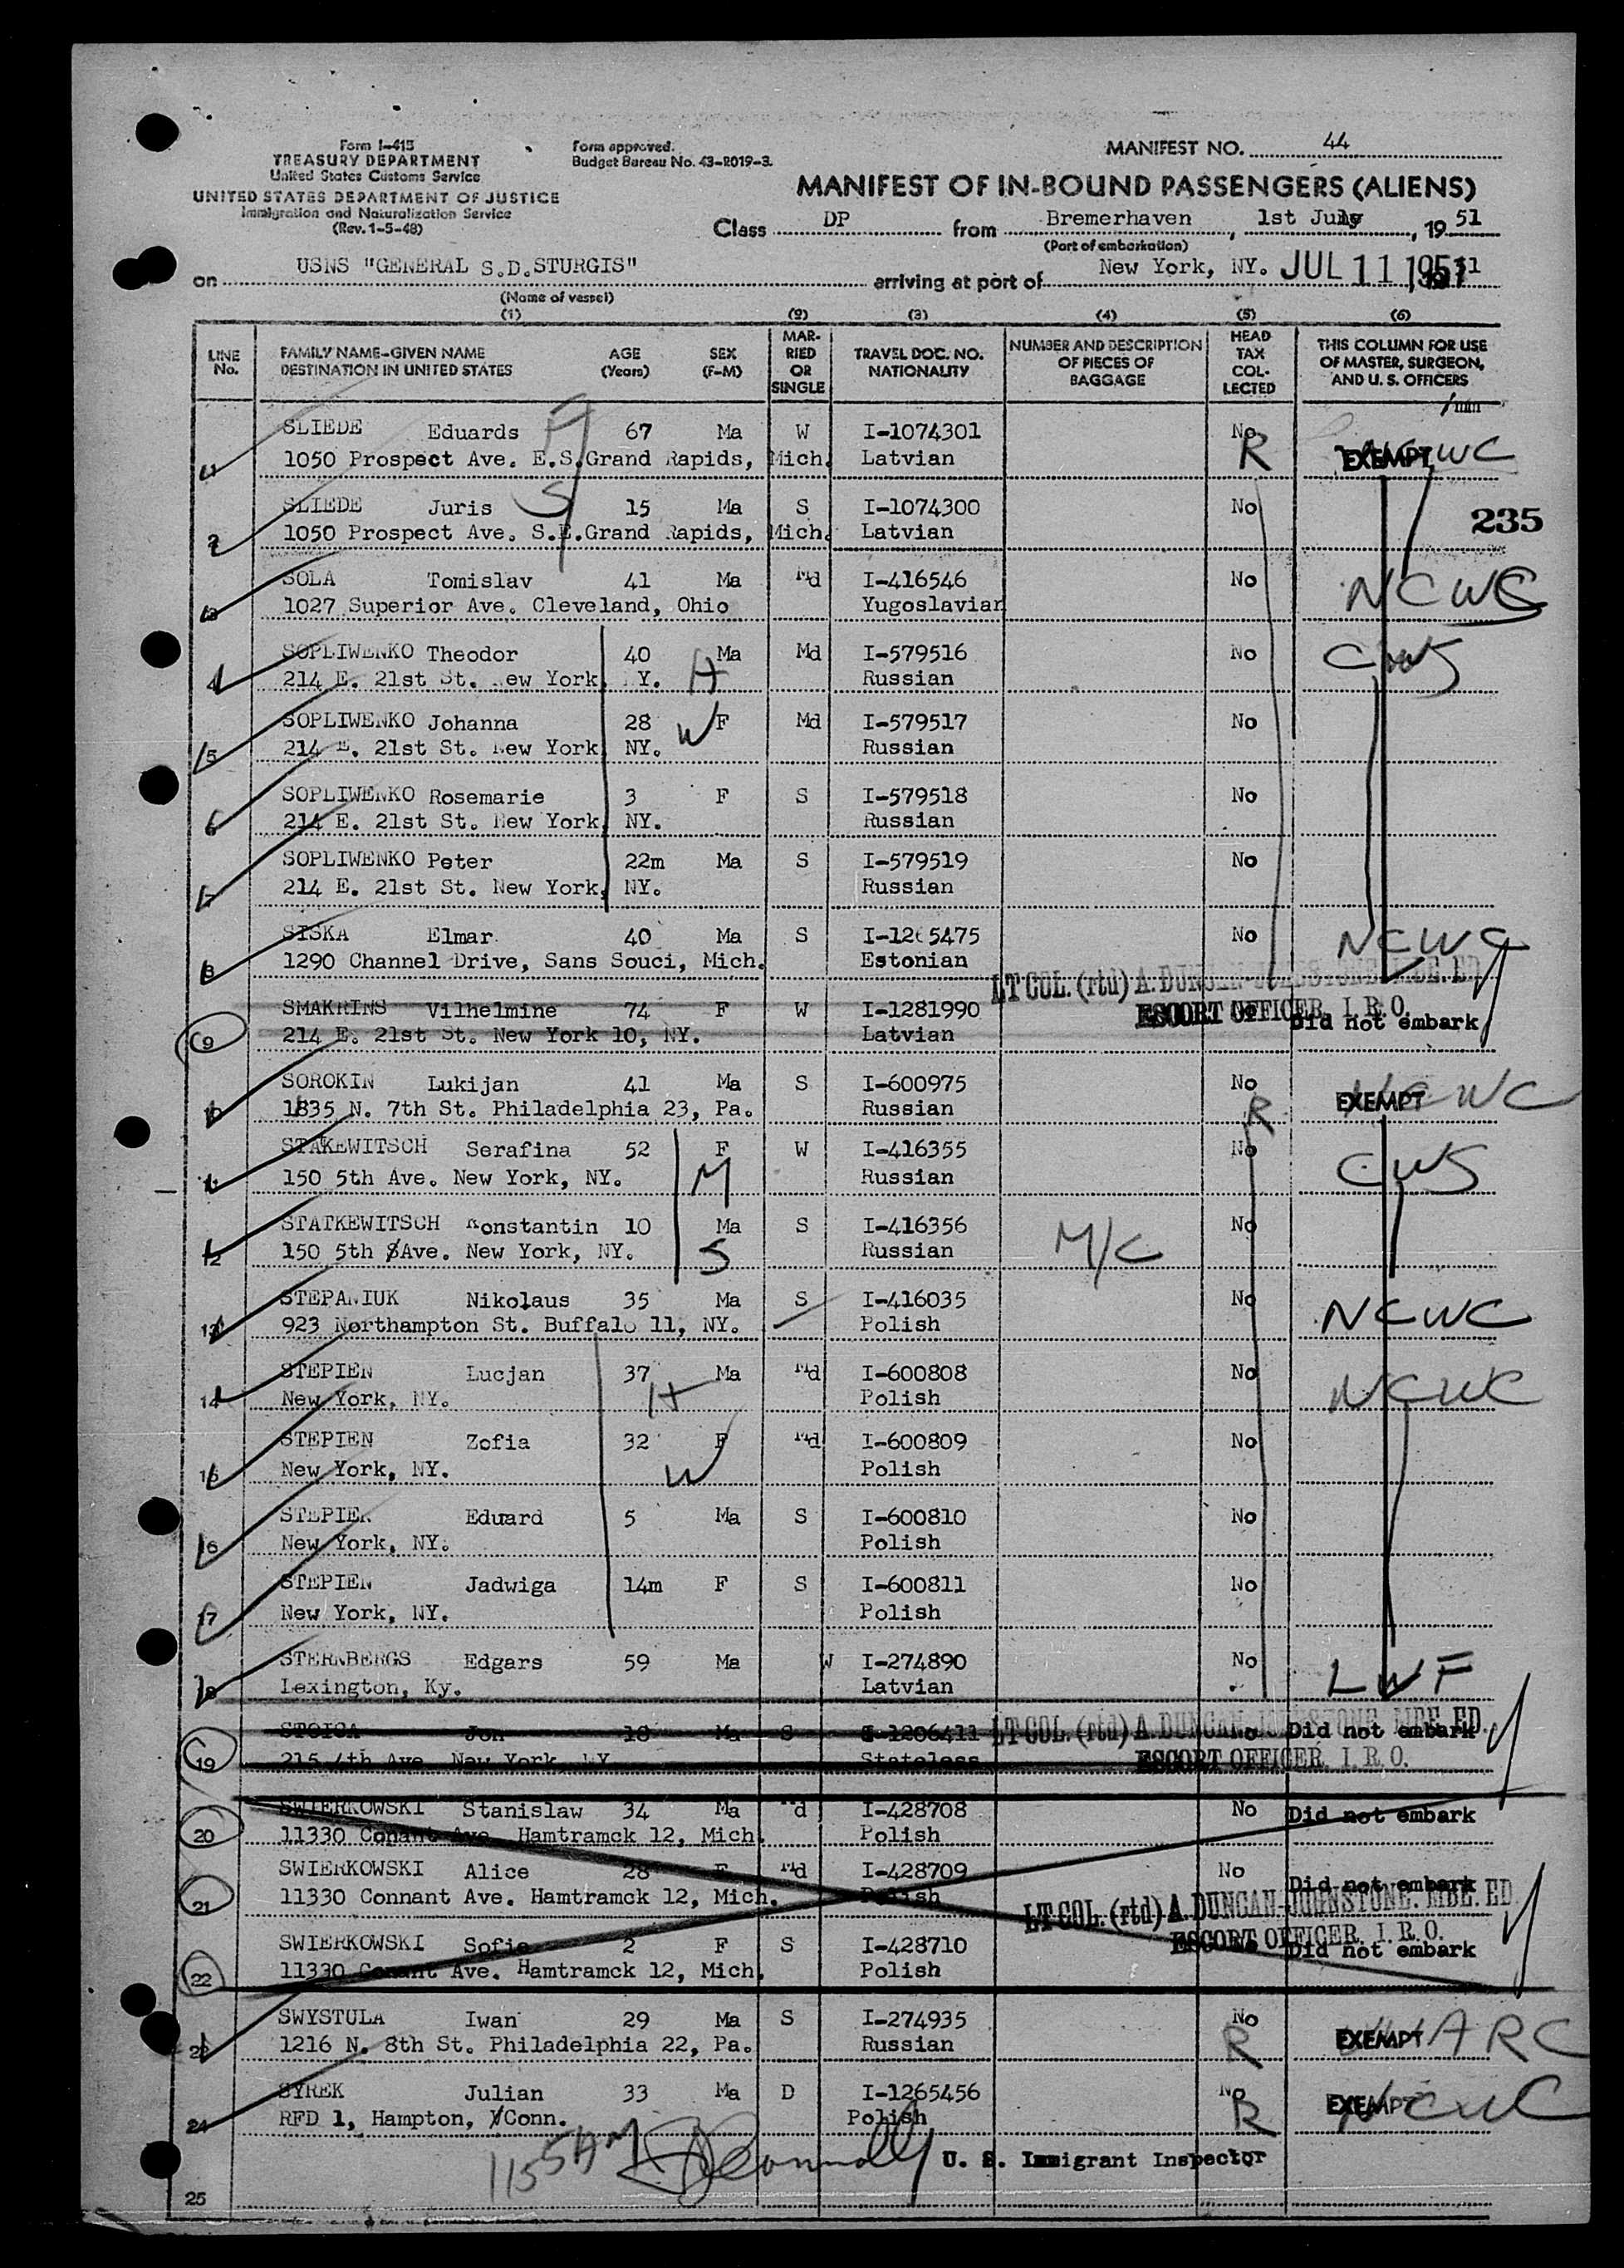 Form I-415
TREASURY DEPARTMENT
United States Customs Service
UNITED STATES DEPARTMENT OF JUSTICE
Immigration and Naturalization Service
(Rev. 1-5-48)
Form approved.
Budget Bureau No. 43-R019-3.
MANIFEST NO. 44
MANIFEST OF IN-BOUND PASSENGERS (ALIENS)
Class DP from Bremerhaven, 1st July, 1951
(Port of embarkation)
on USNS "GENERAL S.D. STURGIS" arriving at port of New York, NY. JUL 11 1951
(Name of vessel)
(1) (2) (3) (4) (5) (6)
LINE No. FAMILY NAME-GIVEN NAME DESTINATION IN UNITED STATES AGE (Years) SEX (F-M) MARRIED OR SINGLE TRAVEL DOC. NO. NATIONALITY NUMBER AND DESCRIPTION OF PIECES OF BAGGAGE HEAD TAX COLLECTED THIS COLUMN FOR USE OF MASTER, SURGEON, AND U. S. OFFICERS
1 SLIEDE Eduards F 67 Ma W I-1074301 No R EXEMPT
1050 Prospect Ave. E.S.Grand Rapids, Mich. Latvian
2 SLIEDE Juris S 15 Ma S I-1074300 No 235
1050 Prospect Ave. S.E.Grand Rapids, Mich. Latvian
3 SOLA Tomislav 41 Ma Md I-416546 No NCWC
1027 Superior Ave. Cleveland, Ohio Yugoslavian
4 SOPLIWENKO Theodor 40 Ma Md I-579516 No CWS
214 E. 21st St. New York, Y. H Russian
5 SOPLIWENKO Johanna 28 W F Md I-579517 No
214 E. 21st St. New York, NY. Russian
6 SOPLIWENKO Rosemarie 3 F S I-579518 No
214 E. 21st St. New York, NY. Russian
7 SOPLIWENKO Peter 22m Ma S I-579519 No
214 E. 21st St. New York, NY. Russian
8 SISKA Elmar 40 Ma S I-1265475 No NCWC
1290 Channel Drive, Sans Souci, Mich. Estonian
LT COL. (rtd) A. DUNCAN-JOHNSTONE. MBE. ED.
9 SMAKRINS Vilhelmine 74 F W I-1281990 ESCORT OFFICER. I. R. O. Did not embark
214 E. 21st St. New York 10, NY. Latvian
10 SOROKIN Lukijan 41 Ma S I-600975 No R EXEMPT NCWC
1835 N. 7th St. Philadelphia 23, Pa. Russian
11 STAKEWITSCH Serafina 52 F W I-416355 No CWS
150 5th Ave. New York, NY. M Russian
12 STATKEWITSCH Konstantin 10 Ma S I-416356 M/C No
150 5th Ave. New York, NY. S Russian
13 STEPANIUK Nikolaus 35 Ma S I-416035 No NCWC
923 Northampton St. Buffalo 11, NY. Polish
14 STEPIEN Lucjan 37 Ma Md I-600808 No NCWC
New York, NY. H Polish
15 STEPIEN Zofia 32 F Md I-600809 No
New York, NY. W Polish
16 STEPIEN Eduard 5 Ma S I-600810 No
New York, NY. Polish
17 STEPIEN Jadwiga 14m F S I-600811 No
New York, NY. Polish
18 STERNBERGS Edgars 59 Ma W I-274890 No LWF
Lexington, Ky. Latvian
19 STOICA Jon 18 Ma S I-1206411 LT COL. (rtd) A. DUNCAN-JOHNSTONE. MBE. ED. Did not embark
215 4th Ave. New York, NY. Stateless ESCORT OFFICER. I. R. O.
20 SWIERKOWSKI Stanislaw 34 Ma Md I-428708 No Did not embark
11330 Conant Ave. Hamtramck 12, Mich. Polish
21 SWIERKOWSKI Alice 28 F Md I-428709 No Did not embark
11330 Connant Ave. Hamtramck 12, Mich. Polish LT COL. (rtd) A. DUNCAN-JOHNSTONE. MBE. ED.
22 SWIERKOWSKI Sofie 2 F S I-428710 ESCORT OFFICER. I. R. O. Did not embark
11330 Conant Ave. Hamtramck 12, Mich. Polish
23 SWYSTULA Iwan 29 Ma S I-274935 No R EXEMPT
1216 N. 8th St. Philadelphia 22, Pa. Russian
24 SYREK Julian 33 Ma D I-1265456 No R EXEMPT NCWC
RFD 1, Hampton, Conn. Polish
1155 AM U. S. Immigrant Inspector
25